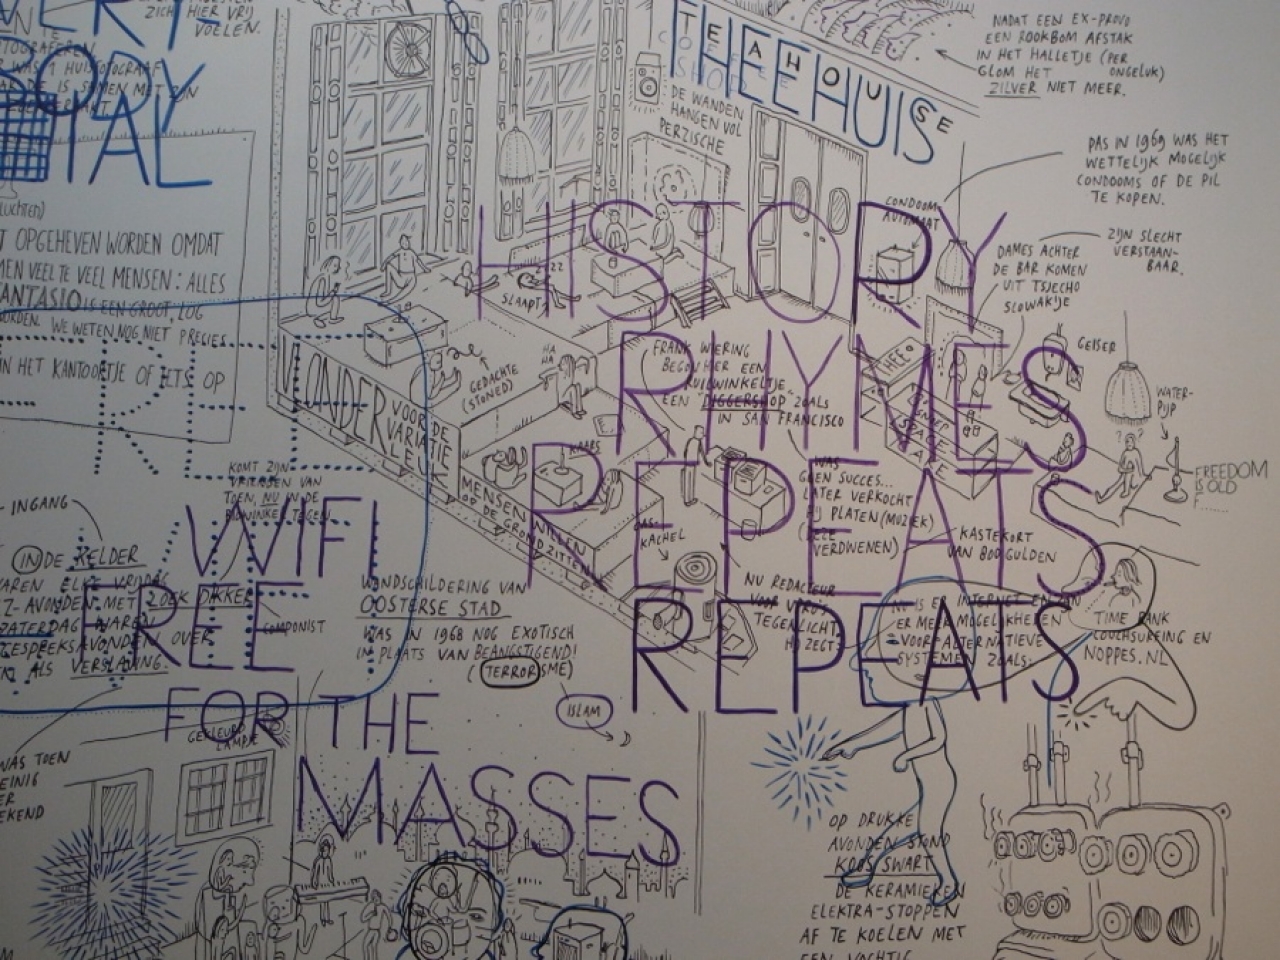 ZICH HIER VRIJ
VOELEN.
FOTOGRAFEREN
WAS 1 HUISFOTOGRAAF
TOTAL
OPGEHEVEN WORDEN OMDAT
VEEL TE VEEL MENSEN: ALLES
FANTASIO IS EEN GROOT, LOG
WORDEN. WE WETEN NOG NIET PRECIES
IN HET KANTOORTJE OF IETS OP
THEEHUISE
TEAHOUSE
COFFEE
SHOP
DE WANDEN
HANGEN VOL
PERZISCHE
NADAT EEN EX-PROVO
EEN ROOKBOM AFSTAK
IN HET HALLETJE (PER
GLOM HET ONGELUK)
ZILVER NIET MEER.
PAS IN 1969 WAS HET
WETTELIJK MOGELIJK
CONDOOMS OF DE PIL
TE KOPEN.
CONDOOM
AUTOMAAT
ZIJN SLECHT
VERSTAAN-
BAAR.
DAMES ACHTER
DE BAR KOMEN
UIT TSJECHO
SLOWAKIJE
GEISER
WATER-
PIJP
THEE
HISTORY
RHYMES
REPEATS
REPEATS
ZZZ
SLAAPT
HA
HA
GEDACHTE
(STONED)
VLONDER VOOR DE
VARIATIE
ELECK
MENSEN WILLEN
OP DE GROND ZITTEN
KAARS
FRANK WIERING
BEGON HIER EEN
RUILWINKELTJE
EEN DIGGERSHOP ZOALS
IN SAN FRANCISCO
WAS
GEEN SUCCES...
LATER VERKOCHT
HIJ PLATEN (MUZIEK)
(DEZE
VERDWENEN)
KASTEKORT
VAN 800 GULDEN
GAS-
KACHEL
NU REDACTEUR
VOOR VPRO'S
TEGENLICHT.
HIJ ZEGT:
NU IS ER INTERNET EN ZIJN
ER MEER MOGELIJKHEDEN
VOOR ALTERNATIEVE
SYSTEMEN ZOALS:
TIME BANK
COUCHSURFING EN
NOPPES.NL
FREEDOM
IS OLD
KOMT ZIJN
VRIENDEN VAN
TOEN, NU IN DE
BIOWINKEL TEGEN
INGANG
IN DE KELDER
WAREN ELKE VRIJDAG
AVONDEN MET LOEK DIKKER
ZATERDAG WAREN
GESPREKSAVONDEN OVER
ALS VERSLAVING.
COMPONIST
WIFI
FREE
FOR THE
MASSES
WANDSCHILDERING VAN
OOSTERSE STAD
WAS IN 1968 NOG EXOTISCH
IN PLAATS VAN BEANGSTIGEND!
(TERRORISME)
ISLAM
GEKLEURD
LAMPJE
WAS TOEN
WEINIG
WEEKEND
OP DRUKKE
AVONDEN STOND
KOOS SWART
DE KERAMIEKEN
ELEKTRA-STOPPEN
AF TE KOELEN MET
EEN VOCHTIG